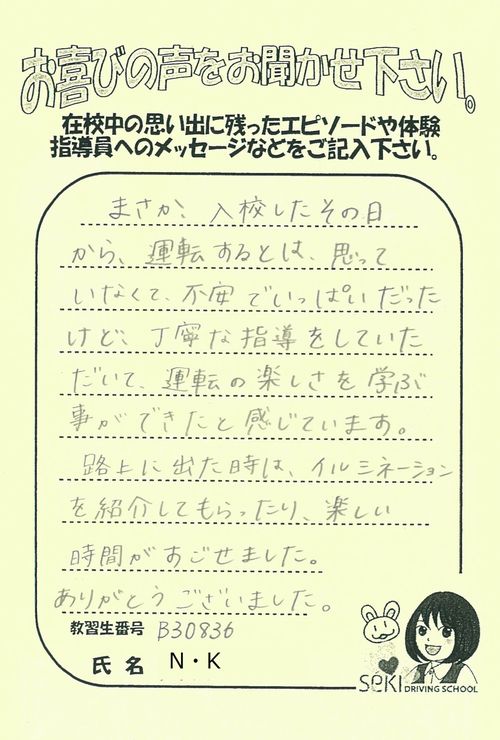 お喜びの声をお聞かせ下さい。
在校中の思い出に残ったエピソードや体験
指導員へのメッセージなどをご記入下さい。
まさか、入校したその日
から、運転するとは、思って
いなくて、不安でいっぱいだった
けど、丁寧な指導をしていた
だいて、運転の楽しさを学ぶ
事ができたと感じています。
路上に出た時は、イルミネーション
を紹介してもらったり、楽しい
時間がすごせました。
ありがとうございました。
教習生番号 B30836
氏名 N・K
SeKI DRIVING SCHOOL